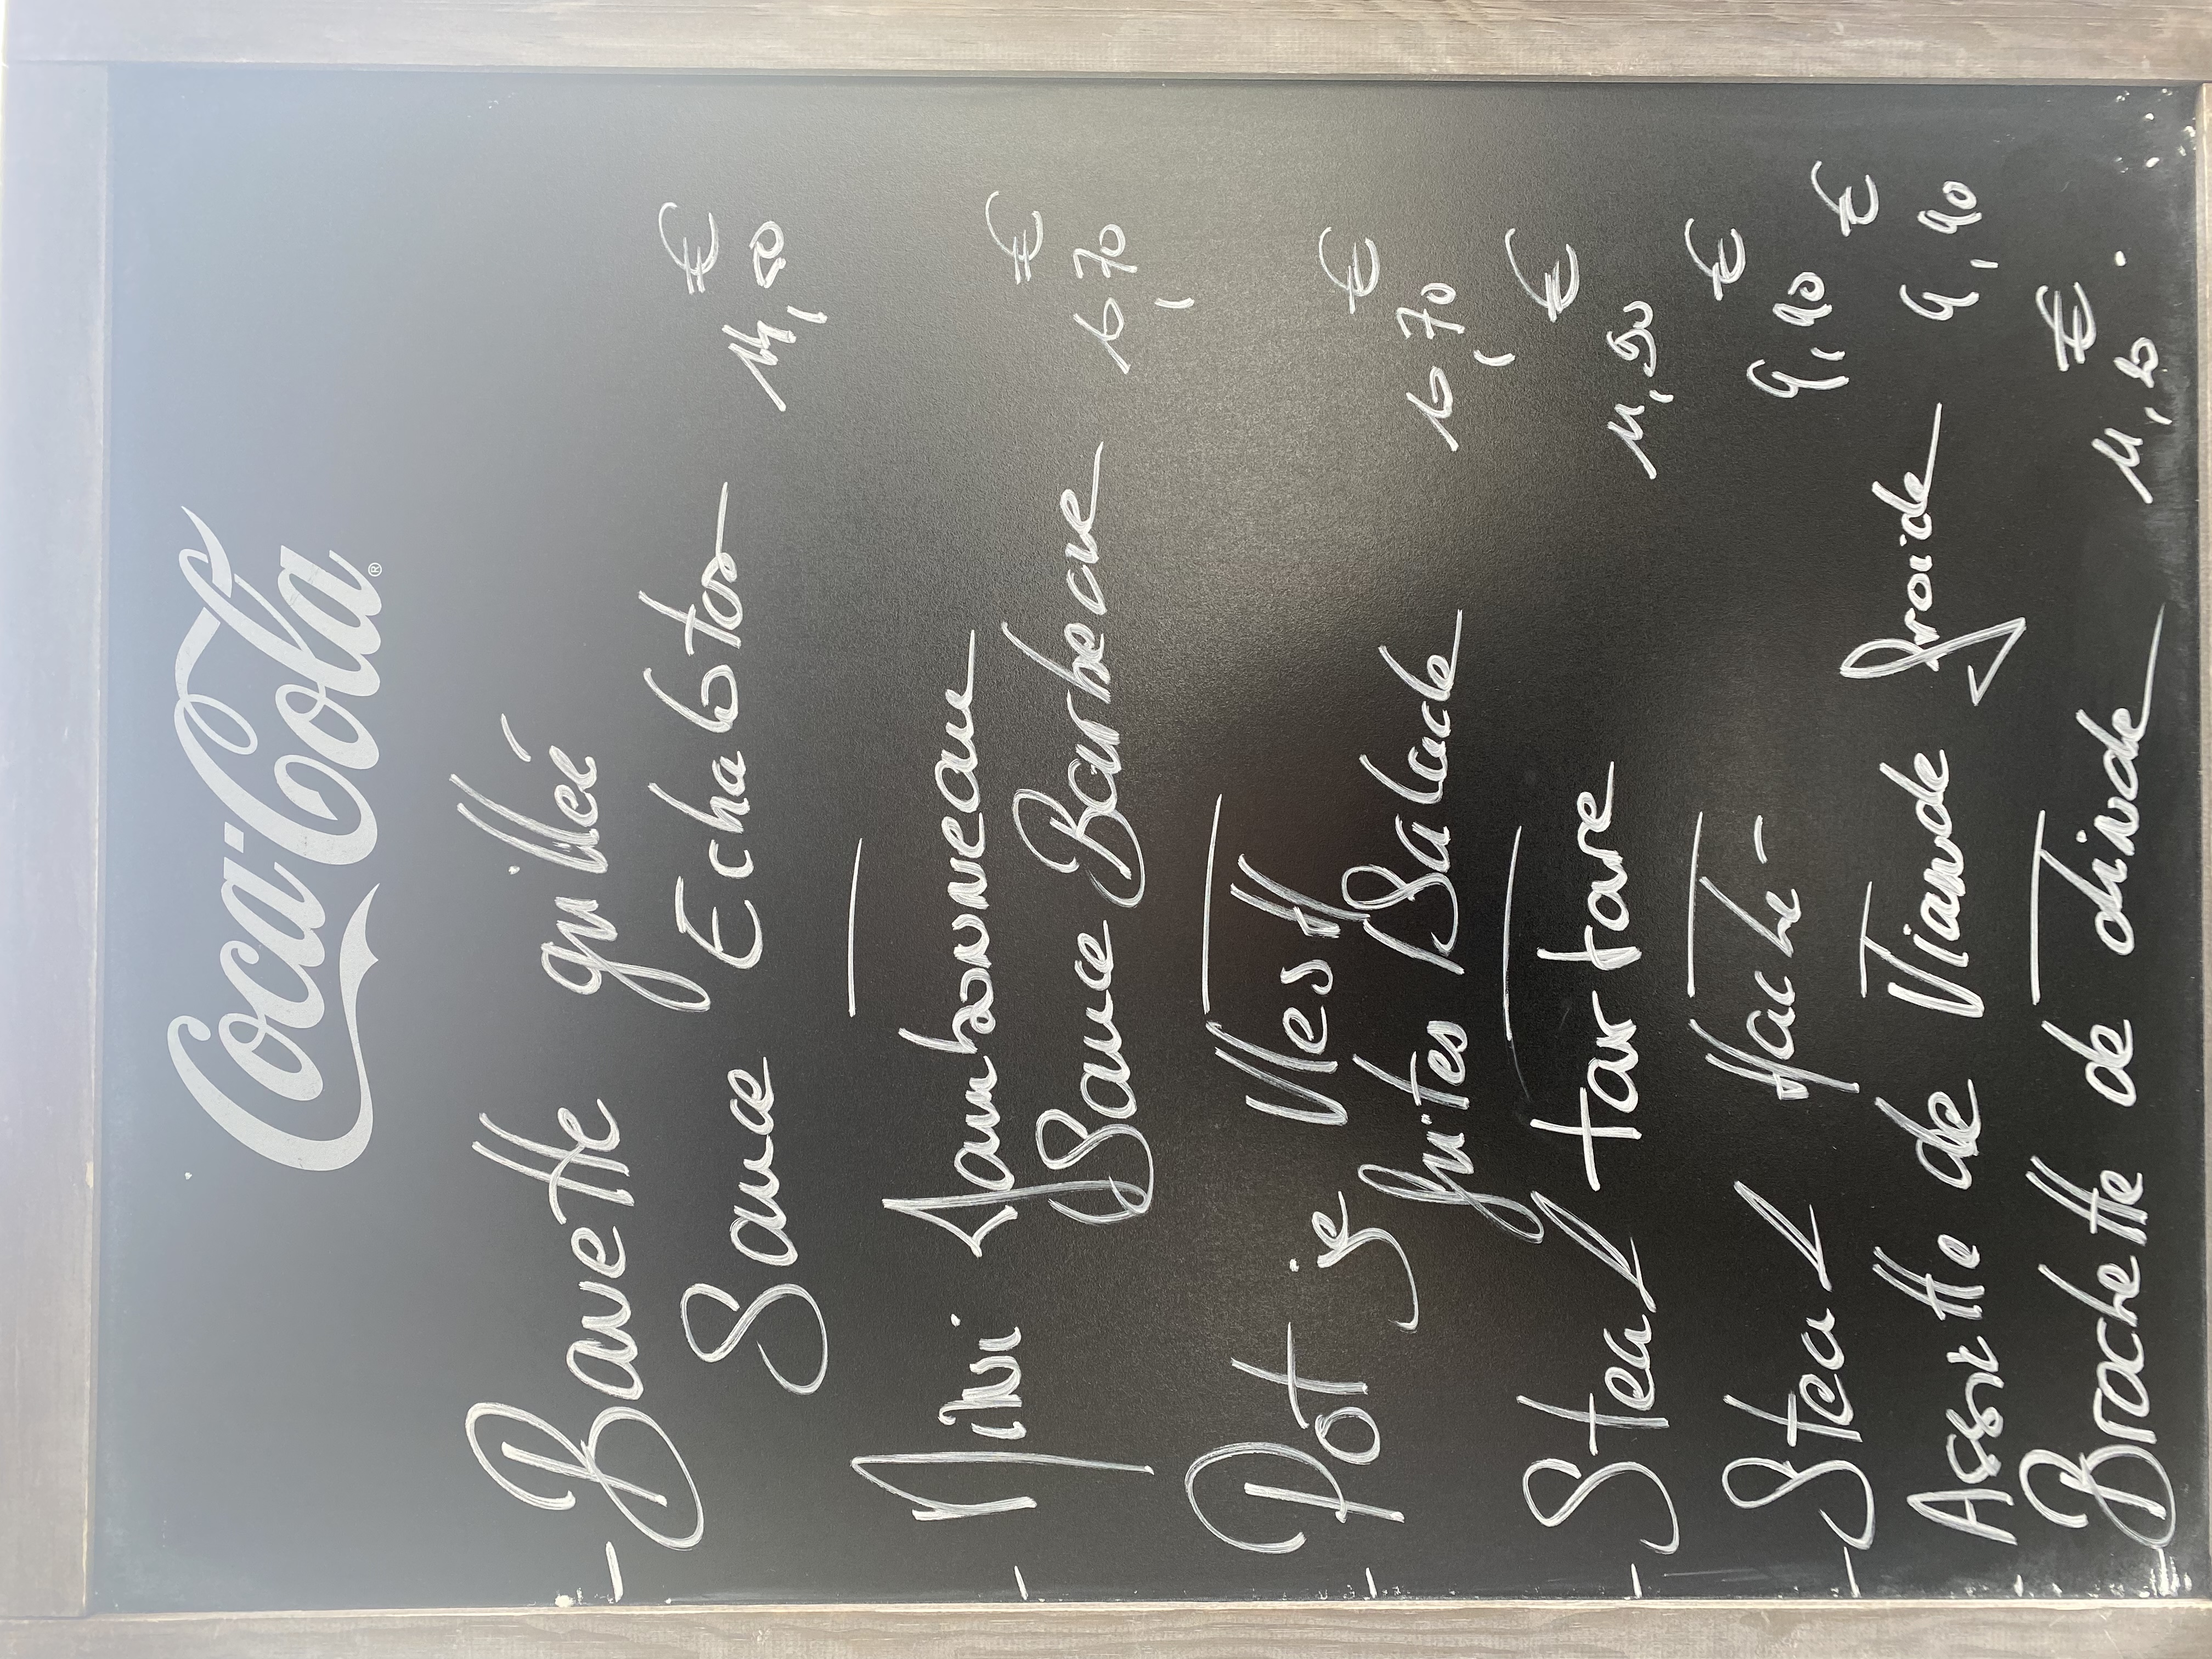 Coca-Cola®
- Bavette grillée
Sauce Echalotes
€
- Mini Jambonneau
Sauce Barbecue
16,70 €
- Potje Vlesh
frites Salade
16,70 €
- Steak tartare
€
- Steak Haché
9,90 €
- Assiette de Viande froide
9,90 €
- Brochette de dinde
€